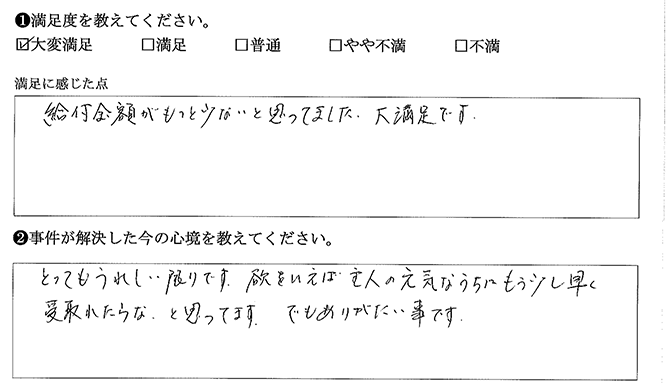 ❶満足度を教えてください。
☑大変満足 □満足 □普通 □やや不満 □不満
満足に感じた点
給付金額がもっと少ないと思ってました。大満足です。
❷事件が解決した今の心境を教えてください。
とってもうれしい限りです。欲をいえば主人の元気なうちにもう少し早く
受取れたらな。と思ってます。でもありがたい事です。